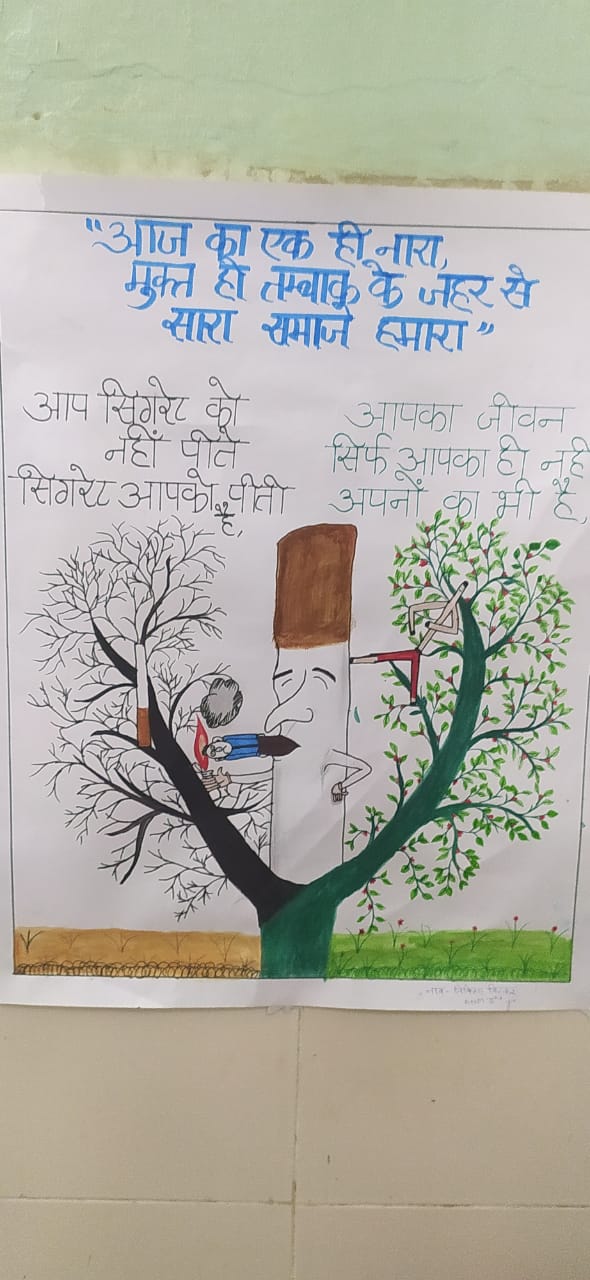 "आज का एक ही नारा,
मुक्त हो तम्बाकू के जहर से
सारा समाज हमारा"
आप सिगरेट को
नहीं पीते
सिगरेट आपको पीती
है,
आपका जीवन
सिर्फ आपका ही नहीं
अपनों का भी है,
नाम-